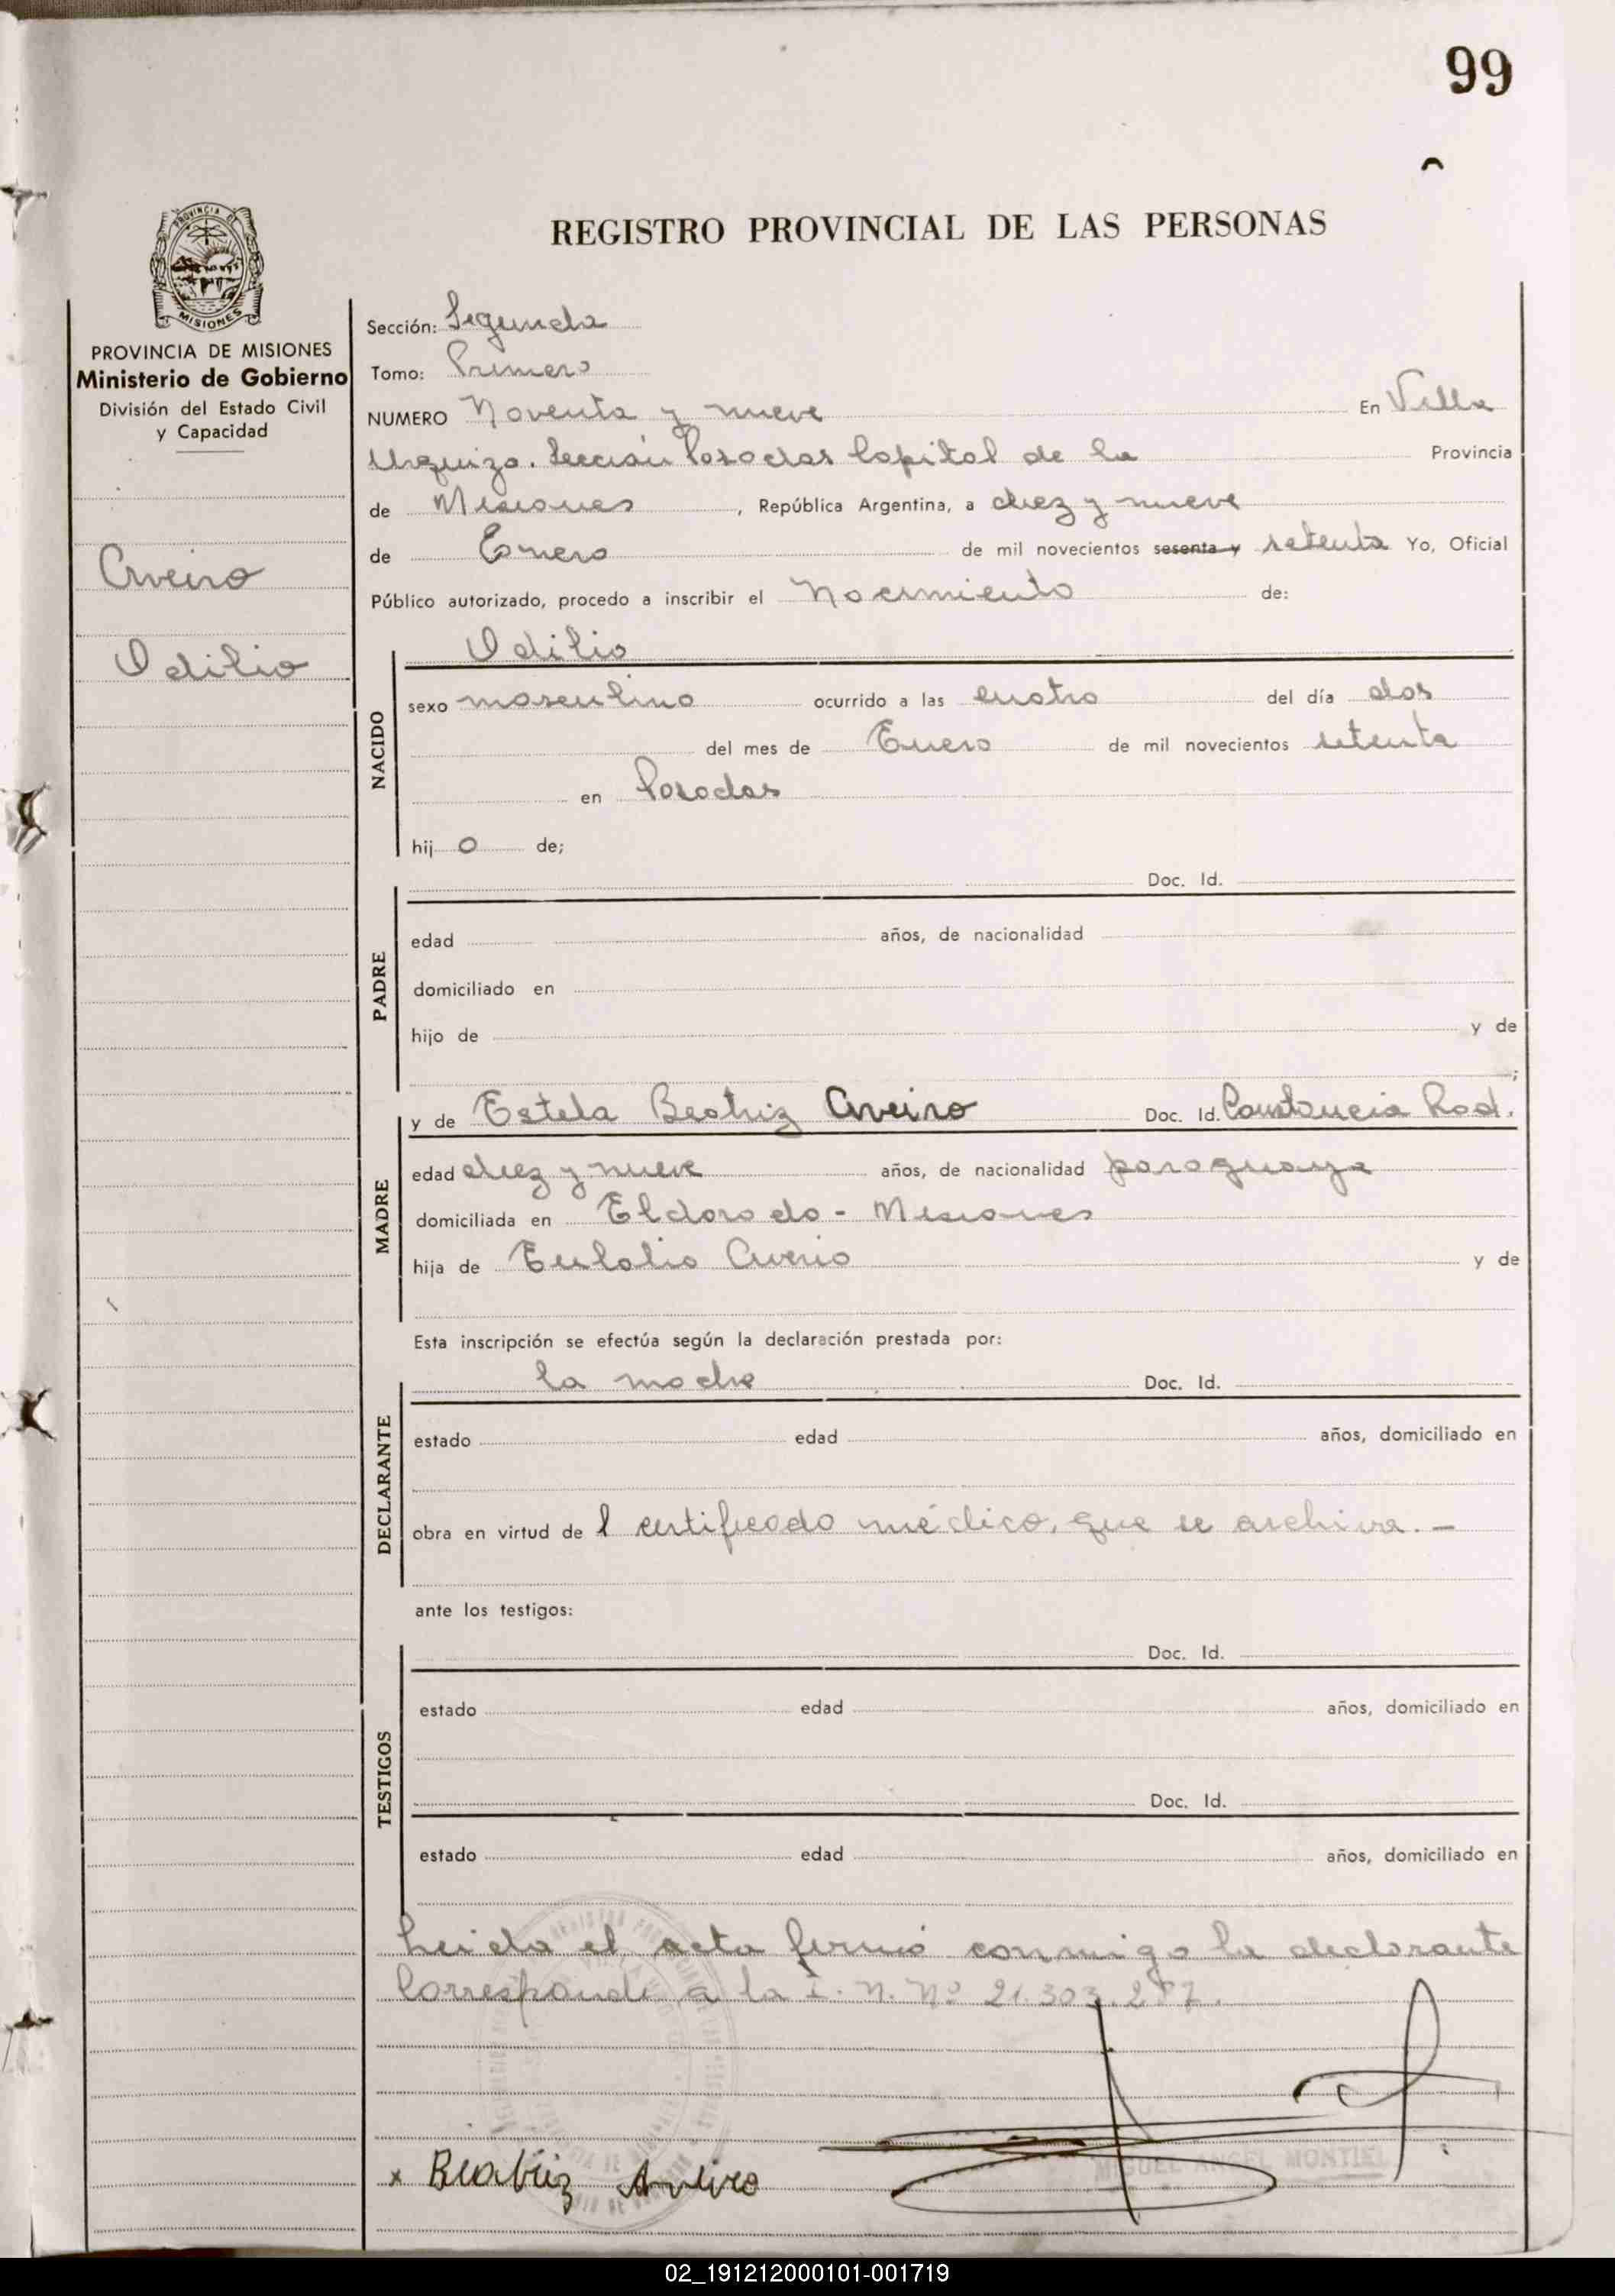 99
REGISTRO PROVINCIAL DE LAS PERSONAS
PROVINCIA DE MISIONES
Ministerio de Gobierno
División del Estado Civil
y Capacidad
Aveiro
Odilio
Sección: Segunda
Tomo: Primero
NUMERO Noventa y nueve En Villa
Urquiza. Sección Posadas Capital de la Provincia
de Misiones, República Argentina, a diez y nueve
de Enero de mil novecientos sesenta y setenta Yo, Oficial
Público autorizado, procedo a inscribir el Nacimiento de:
NACIDO
Odilio
sexo masculino ocurrido a las cuatro del día dos
del mes de Enero de mil novecientos setenta
en Posadas
hij o de;
PADRE
Doc. Id.
edad años, de nacionalidad
domiciliado en
hijo de y de
;
MADRE
y de Estela Beatriz Aveiro Doc. Id. Constancia Rad.
edad diez y nueve años, de nacionalidad paraguaya
domiciliada en Eldorado - Misiones
hija de Eulalio Averio y de
Esta inscripción se efectúa según la declaración prestada por:
DECLARANTE
la madre Doc. Id.
estado edad años, domiciliado en
obra en virtud de l certificado médico, que se archiva. -
ante los testigos:
TESTIGOS
Doc. Id.
estado edad años, domiciliado en
Doc. Id.
estado edad años, domiciliado en
Leida el acta firmó conmigo la declarante
Corresponde a la I. N. Nº 21.303.287.
x Beatriz Aveiro
MIGUEL ANGEL MONTIEL
02_191212000101-001719